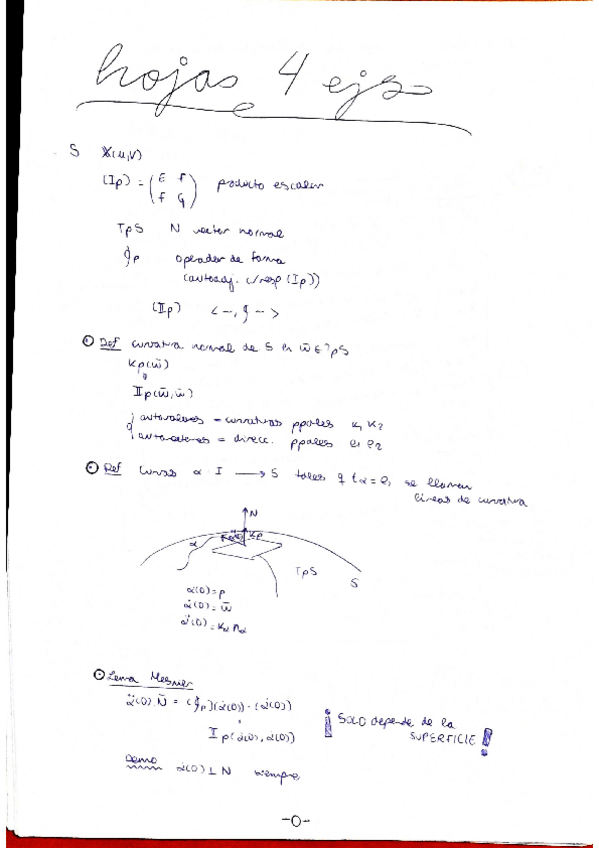 hojas 4 ejs
S X(u,v)
(Ip) = (E F
F G) producto escalar
TpS N vector normal
operador de forma
(autoadj. c/resp (Ip))
(IIp) < -, - >
Def curvatura normal de S en w̄ ∈ TpS
Kp(w̄)
IIp(w̄,w̄)
autovalores = curvaturas ppales K1 K2
autovectores = direcc. ppales e1 e2
Def curvas α: I → S tales q tα = ei se llaman
líneas de curvatura
N
Kp
α
TpS
S
α(0)=p
α̇(0)=w̄
α̈(0)=Kα nα
Lema Mesnier
α̈(0).N̄ = (p)(α̇(0)).(α̇(0))
IIp(α̇(0),α̇(0))
¡ SOLO depende de la
SUPERFICIE !
Demo α̇(0)⊥N siempre
-0-